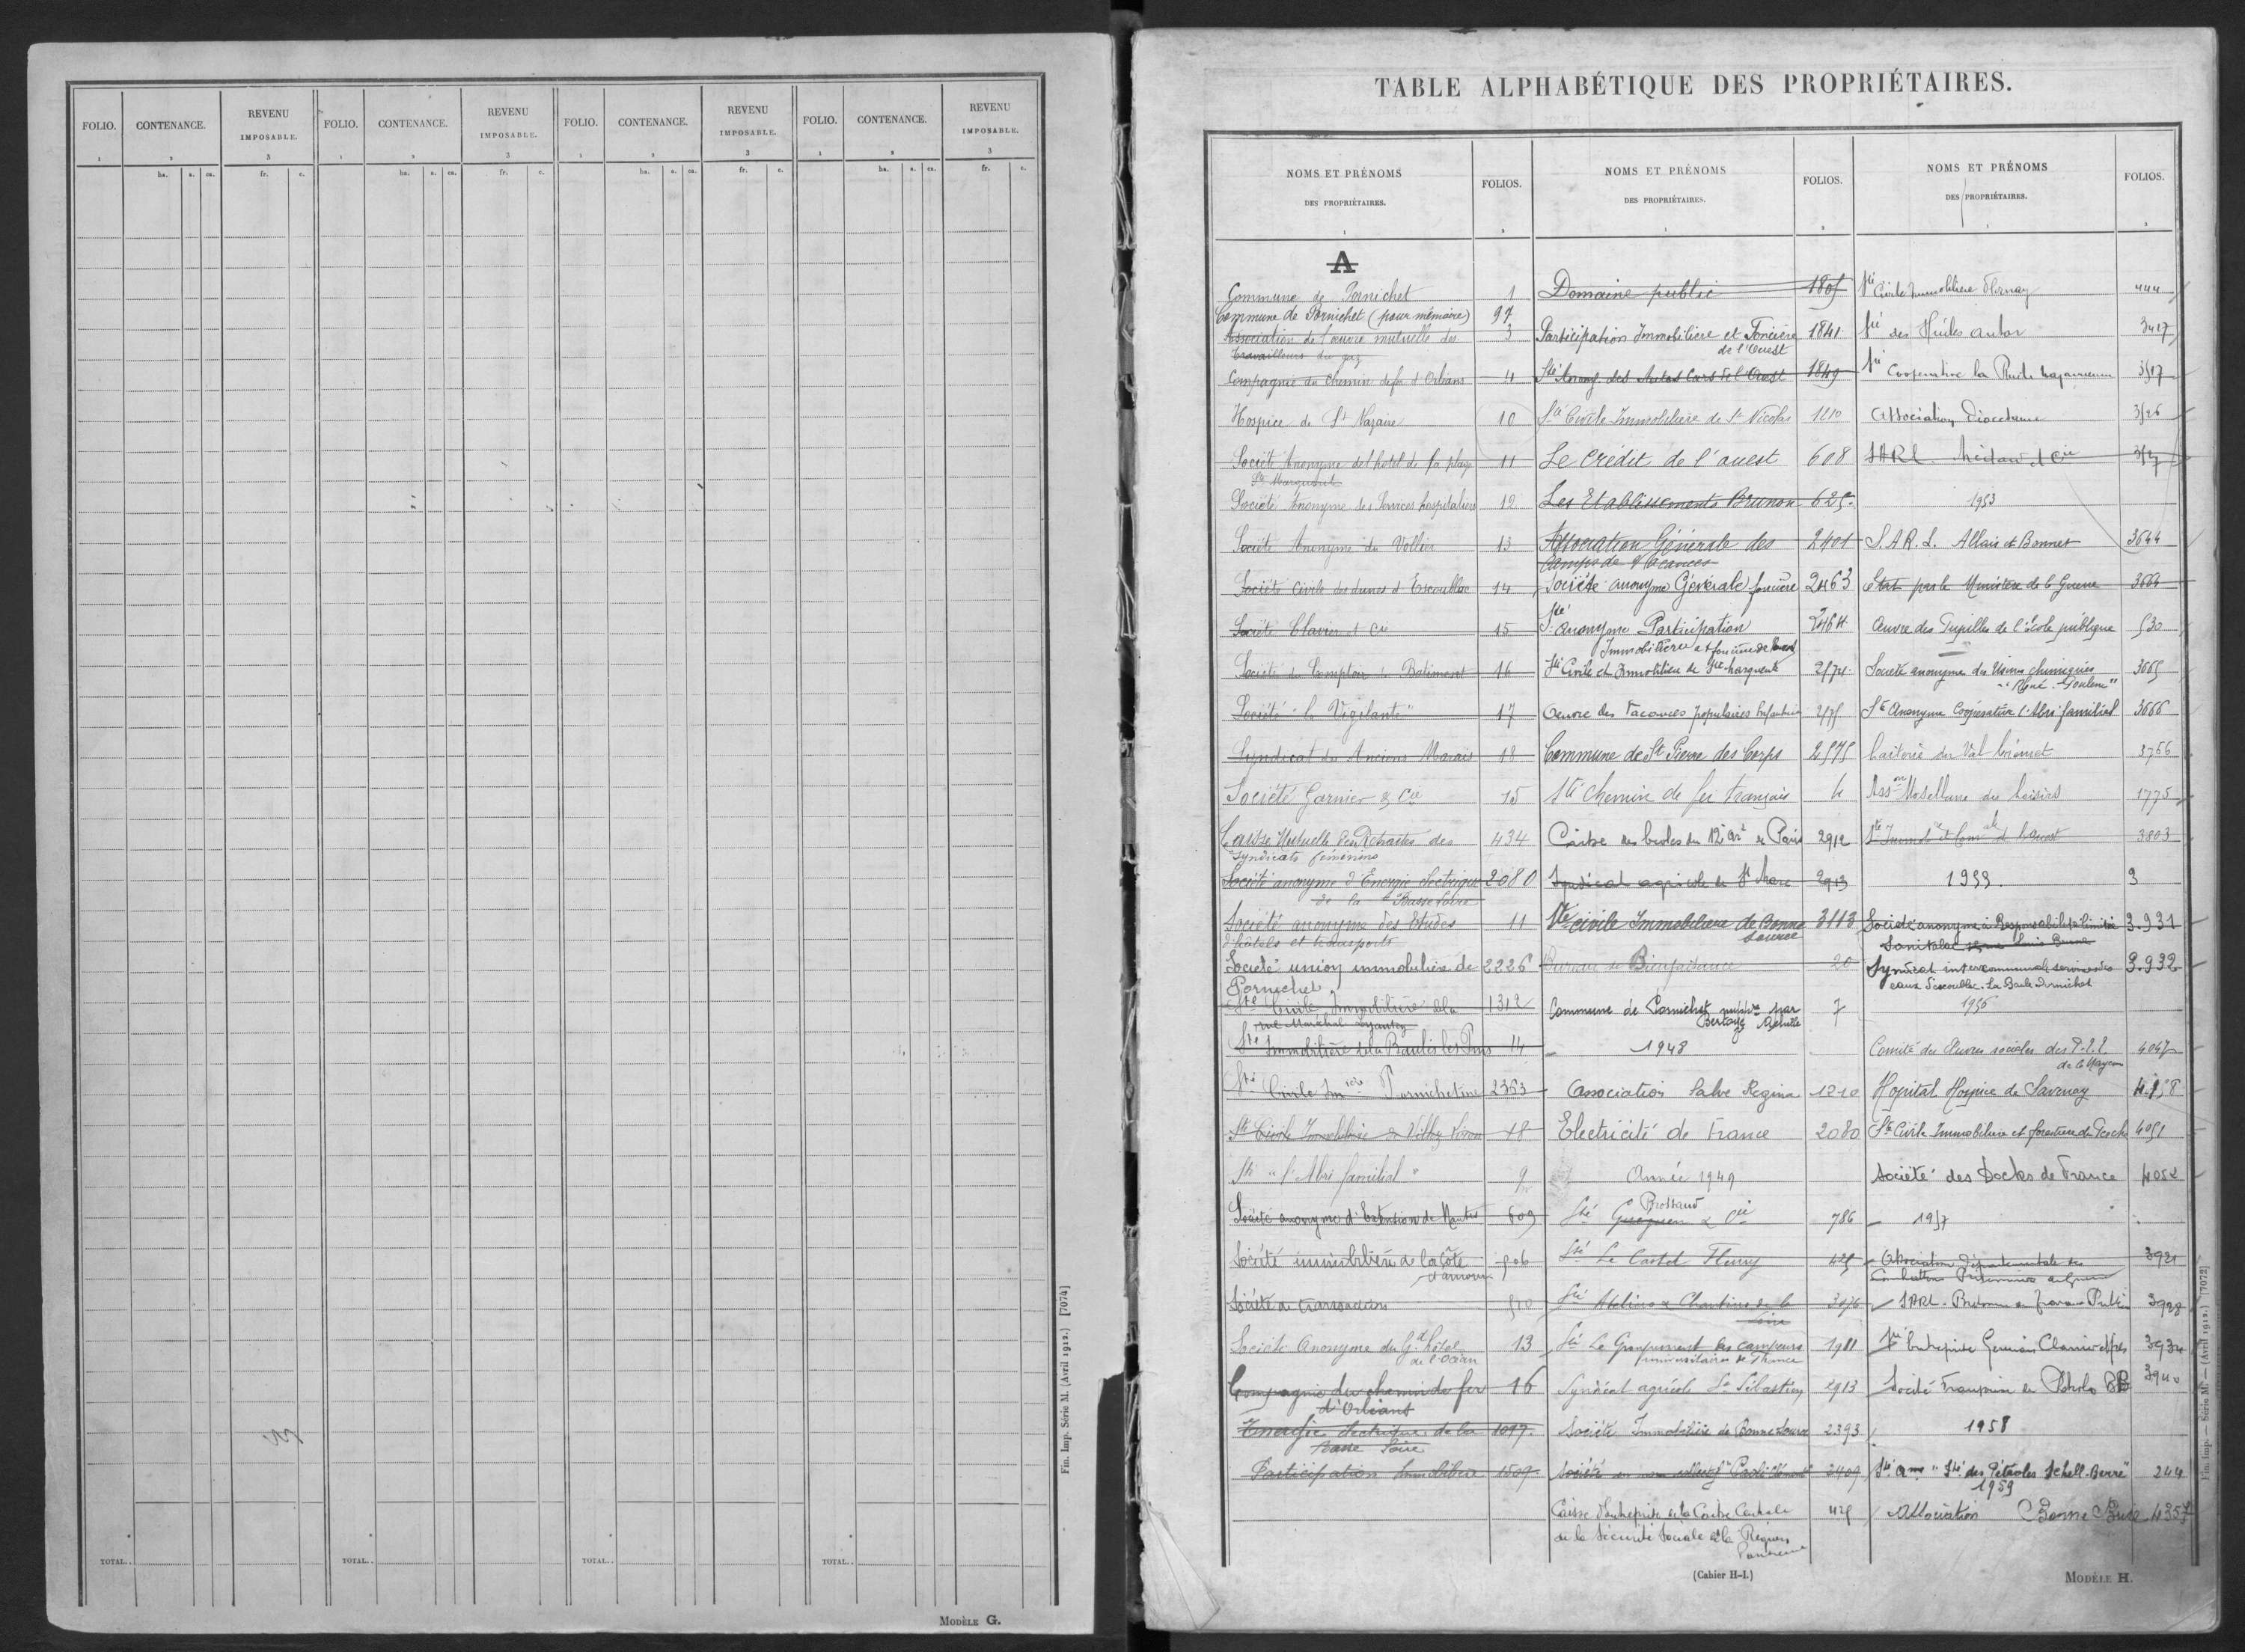 FOLIO. CONTENANCE. REVENU IMPOSABLE. FOLIO. CONTENANCE. REVENU IMPOSABLE. FOLIO. CONTENANCE. REVENU IMPOSABLE. FOLIO. CONTENANCE. REVENU IMPOSABLE.
1 2 3 1 2 3 1 2 3 1 2 3
ha. a. ca. fr. c. ha. a. ca. fr. c. ha. a. ca. fr. c. ha. a. ca. fr. c.
TOTAL.. TOTAL.. TOTAL.. TOTAL..
Fin. Imp. Série M. (Avril 1912.) [7074]
MODÈLE G.
TABLE ALPHABÉTIQUE DES PROPRIÉTAIRES.
NOMS ET PRÉNOMS
DES PROPRIÉTAIRES.
FOLIOS.
1 2
A
Commune de Pornichet 1
Commune de Pornichet (pour mémoire) 97
Association de l'œuvre mutuelle des 3
Travailleurs du gaz
Compagnie du Chemin de fer d'Orléans 4
Hospice de St Nazaire 10
Société Anonyme de l'hotel de la plage 11
Ste Marguerite
Société Anonyme des Services hospitaliers 12
Société Anonyme du 13
Société Civile des dunes d'Escoublac 14
Société Clavier et Cie 15
Société du Comptoir du Batiment 16
Société "la Vigilante" 17
Syndicat des Anciens Marais 18
Société Garnier & Cie 15
Caisse Mutuelle des Retraites des 434
Syndicats féminins
Société anonyme d'Energie électrique 2080
de la Basse Loire
Société anonyme des Etudes 11
d'hôtels et transports
Société union immobilière de 2226
Pornichet
Sté Civile Immobilière de la 1312
rue Maréchal Lyautey
Sté Immobilière de la Baule les Pins 14
Sté Civile Pornichetine 2353
Sté Civile Immobilière 18
Sté "l'Abri familial" 9
Société anonyme d'Extension de Nantes 609
Société immobilière de la côte 506
d'amour
Société de transaction 510
Société Anonyme du Gd hôtel 13
de l'Océan
Compagnie du chemin de fer 16
d'Orléans
Energie électrique de la 1097
Basse Loire
Participation Immobilière 1509
NOMS ET PRÉNOMS
DES PROPRIÉTAIRES.
FOLIOS.
1 2
Domaine public 1801
Participation Immobilière et Foncière 1841
de l'Ouest
Sté Anony. des Autos Cars de l'Ouest 1849
Sté Civile Immobilière de St Nicolas 1210
Le crédit de l'ouest 608
Les Etablissements Brunon 625
Association Générale des 2401
Camps de Vacances
Société anonyme Générale foncière 2463
Sté anonyme Participation 2464
Immobilière et foncière de l'ouest
Sté Civile et Immobilière de Ste Marguerite 2574
Œuvre des Vacances populaires Enfantines 2575
Commune de St Pierre des Corps 2575
Sté Chemin de fer français 4
Caisse des Ecoles du 12e arrt de Paris 2912
Syndicat agricole de St Marc 2913
Sté civile Immobilière de Bonne 3113
source
Bureau de Bienfaisance 20
Commune de Pornichet par 7
1948
Association Salve Regina 1210
Electricité de France 2080
Année 1949
Brossaud
Sté & Cie 786
Sté Le Castel Fleury 425
Sté Ateliers & Chantiers de la 3076
Loire
Sté Le Groupement des campeurs 1981
universitaires de France
Syndicat agricole St Sébastien 2913
Société Immobilière de Bonne Source 2393
Société en nom collectif 2409
Caisse d'entreprise de la Caisse Centrale 425
de la Sécurité Sociale de la Région
Parisienne
(Cahier H-I.)
NOMS ET PRÉNOMS
DES PROPRIÉTAIRES.
FOLIOS.
1 2
Sté Civile Immobilière 444
Sté des Huiles antar 3417
Sté Cooperative la Ruche 3517
Association Diocésaine 3526
SARL et Cie 3527
1953
S.A.R.L. Allais et Bonnet 3644
Etat par le Ministère de la Guerre 3664
Œuvre des Pupilles de l'école publique 530
Société anonyme des Usines chimiques 3665
Sté Anonyme Coopérative l'Abri familial 3666
Laiterie du Val 3766
Asson Mosellane des loisirs 1775
Sté de l'ouest 3803
1955. 3
Société anonyme à Responsabilité limitée 3.931
Syndicat intercommunal 3.932
eaux Escoublac. La Baule Pornichet
1956
Comité des Œuvres sociales des P.T.T. 4047
de la Mayenne
Hopital Hospice de Savenay 4.158
Sté Civile Immobilière et forestière 4051
Société des Docks de France 4052
1957
Association départementale des 3921
SARL. 3928
Sté Entreprise Germain Clavier & fils 3934
Société Française des Pétroles BP 3940
1958
Sté ame "Sté des Pétroles Schell-Berre" 244
1959
Association 4357
MODÈLE H.
Fin. Imp. — Série M. — (Avril 1912.) [7072]